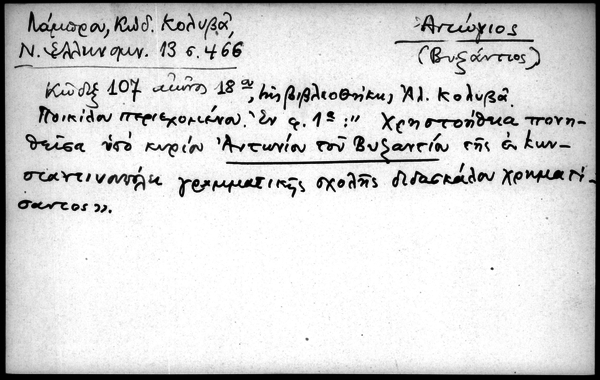 Λάμπρου, Κώδ. Κολυβᾶ,
Ν. Ἑλληνομν. 13 σ. 466
Ἀντώνιος
(Βυζάντιος)
Κῶδιξ 107 αἰῶνος 18ου, τῆς βιβλιοθήκης Ἀλ. Κολυβᾶ.
Ποικίλου περιεχομένου. Ἐν φ. 1α: " Χρηστοήθεια πονη-
θεῖσα ὑπὸ κυρίου Ἀντωνίου τοῦ Βυζαντίου τῆς ἐν Κων-
σταντινουπόλει γραμματικῆς σχολῆς διδασκάλου χρηματί-
σαντος».